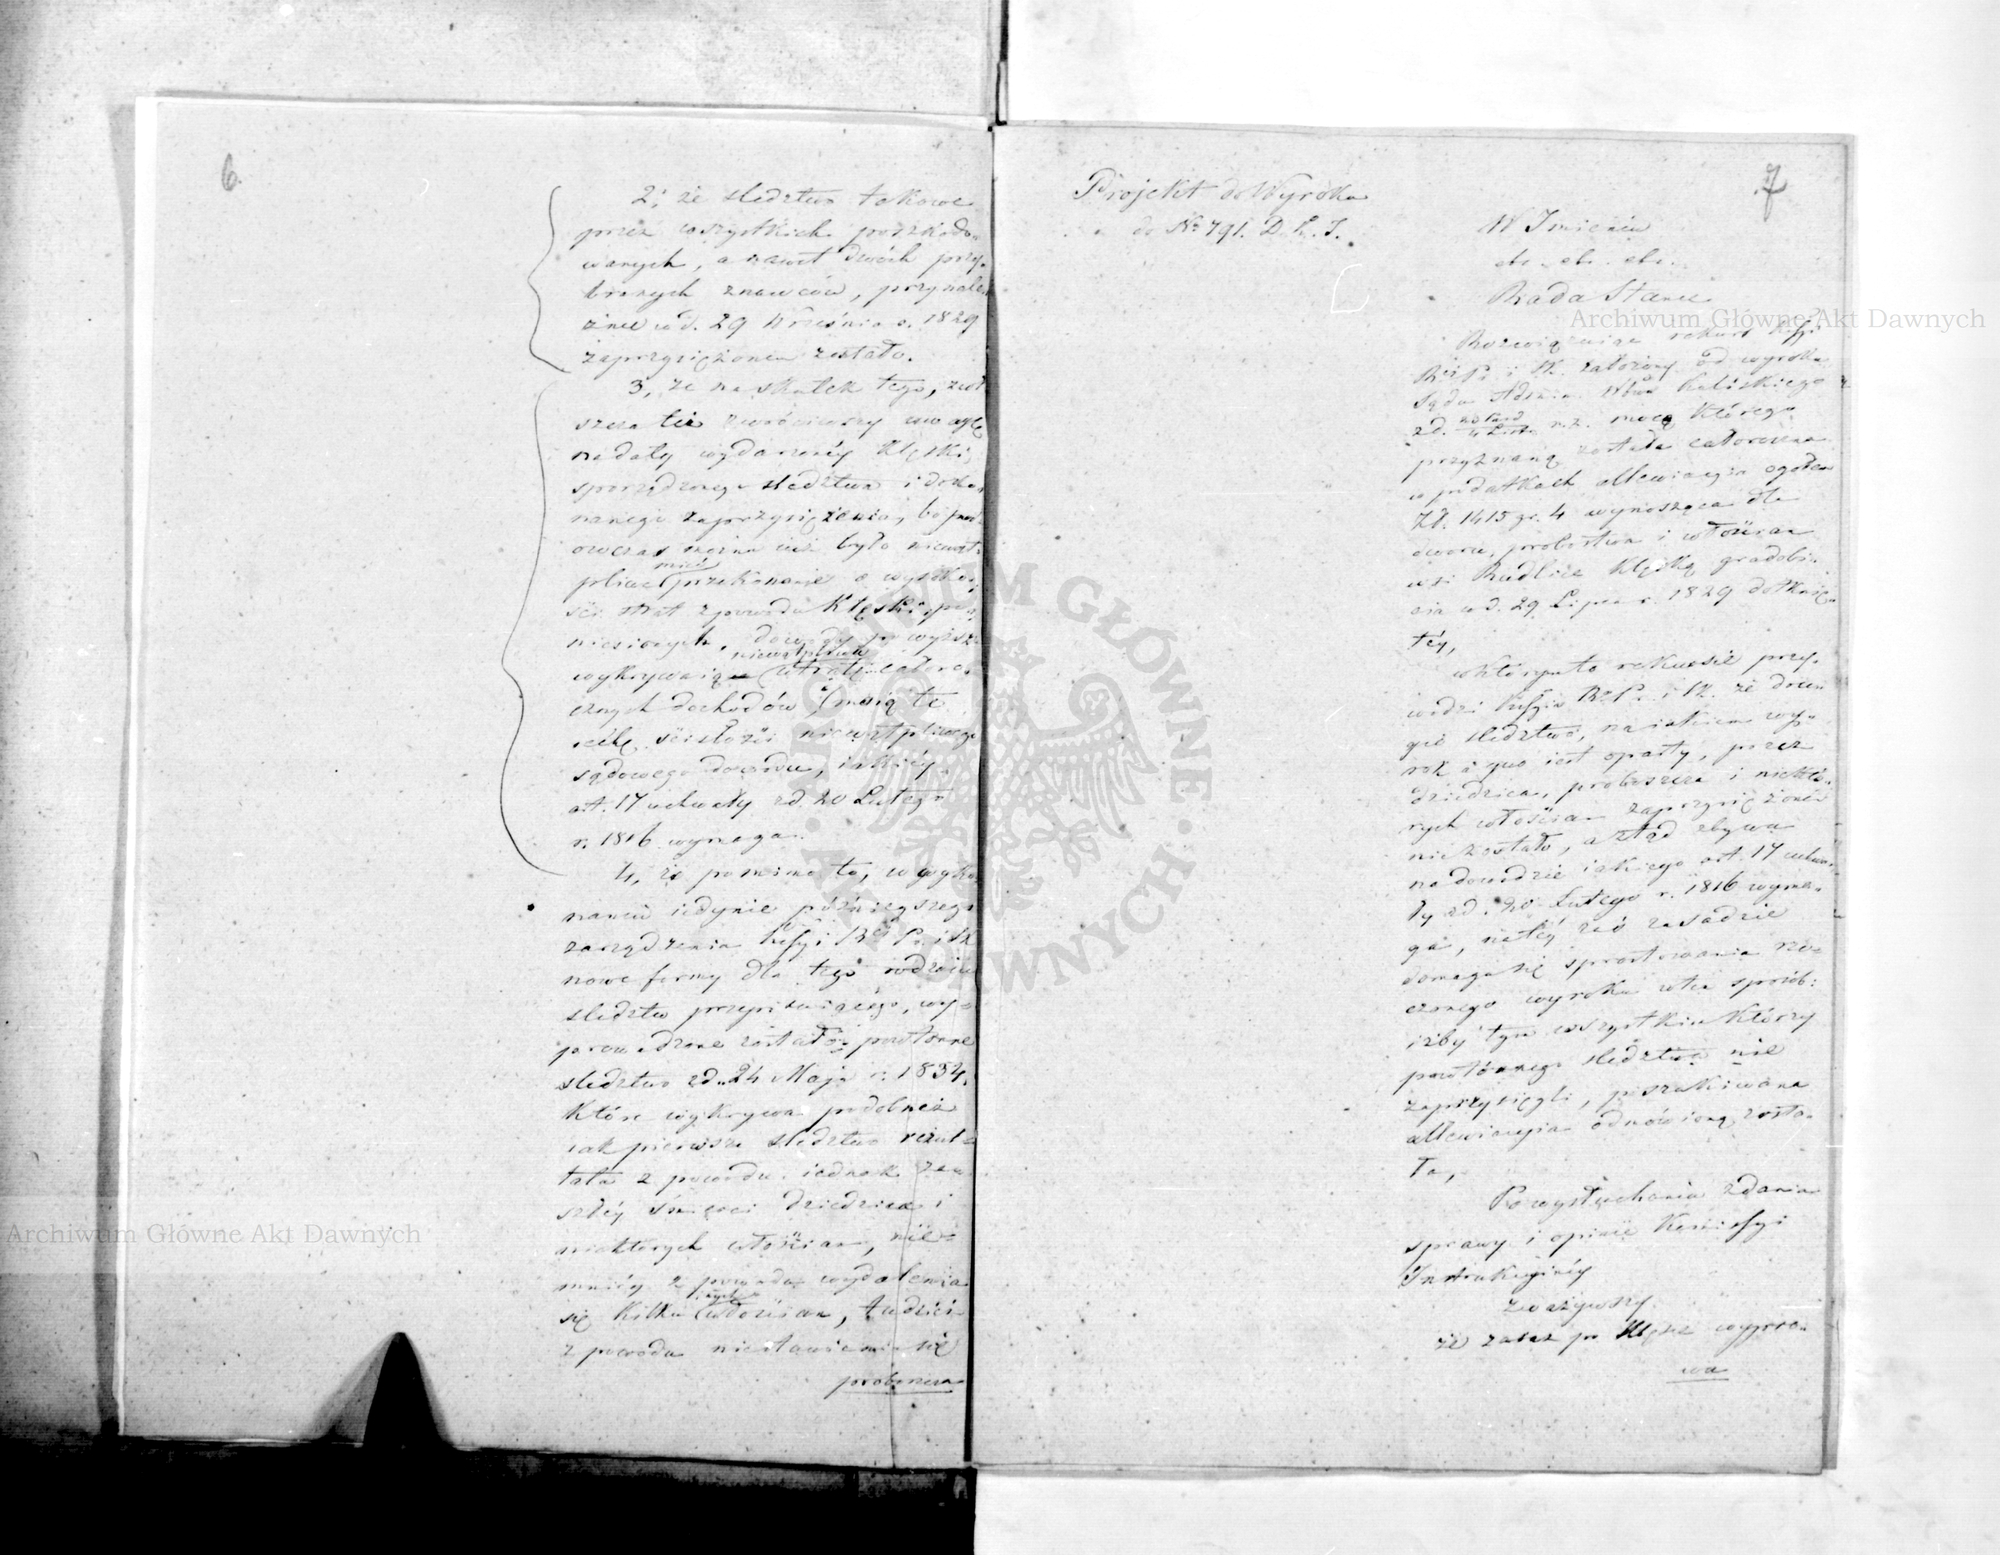 6.
2, że śledztwo takowe
przez wszystkich poszkodo-
wanych, a nawet dwóch przy-
branych znawców, przynale-
żnie w d. 29 Września r. 1829
zaprzysiężonem zostało.
3, że na skutek tego, zwł
szcza też zwróciwszy uwagę
na daty wydarzonéj klęski,
sporządzonego śledztwa i doko-
nanego zaprzysiężenia, bo
owczas można już było niewąt-
mieć
pliwe przekonanie o wysoko-
ści strat z powodu klęski po-
niesionych, dowody powyższe
niewątpliwie
wykrywają utratę całoro-
cznych dochodów i mają te
cechę ścisłości niewątpliwego
sądowego dowodu, iakiéy
art. 17 uchwały z d. 20 Lutego
r. 1816 wymaga.
4, że pomimo to, w wyko-
naniu iedynie późnieyszego
zarządzenia Kssyi R. P. i Sk
nowe formy dla tego rodzaiu
śledztw przepisuiącego, wy-
prowadzone zostało powtórne
śledztwo z d. 24 Maja r. 1834,
które wykrywa podobneż
iak pierwsze śledztwo rezul-
tata z powodu iednak za
szłéy śmierci dziedzica i
niektórych włościan, nie-
mniéy z powodu wydalenia
się kilku włościan, tudzież
z powodu niestawienia się
proboszcza
Projekt do Wyroku
do Nr 791. D. L. I.
7
W Imieniu
etc. etc. etc.
Rada Stanu
Rozwiązuiąc rekurs Kssyi
R. P. i Sk. założony od wyroku
Sądu Admin. Wwa Kaliskiego
z d. r. z. mocą którego
przyznaną została całoroczna
w podatkach allewiacyia ogółem
Zł. 1415 gr. 4 wynosząca dla
dworu, probostwa i włościan
wsi Rudlice klęską gradobi-
cia w d. 29 Lipca r. 1829 dotknię-
téy,
w którym to rekursie przy-
wodzi Kssyia R. P. i Sk. że dru-
gie śledztwo, na iakiem wy-
rok à quo iest oparty, przez
dziedzica, proboszcza i niektó-
rych włościan zaprzysiężone
nie zostało, a ztąd zbywa
na dowodzie iakiego art. 17 uchwa-
ły z d. 20 Lutego r. 1816 wyma-
ga, na téy zaś zasadzie
domaga się sprostowania rze-
czonego wyroku w ten sposób:
iżby tym wszystkim którzy
powtórnego śledztwa nie
zaprzysięgli, poszukiwana
allewiacyia odmówioną zosta-
ła,
Po wysłuchaniu zdania
sprawy i opinii Kommissyi
Instrukcyinéy
zważywszy
że zaraz po klęsce wypro-
wa
Archiwum Główne Akt Dawnych
Archiwum Główne Akt Dawnych
ARCHIWUM GŁÓWNE AKT DAWNYCH